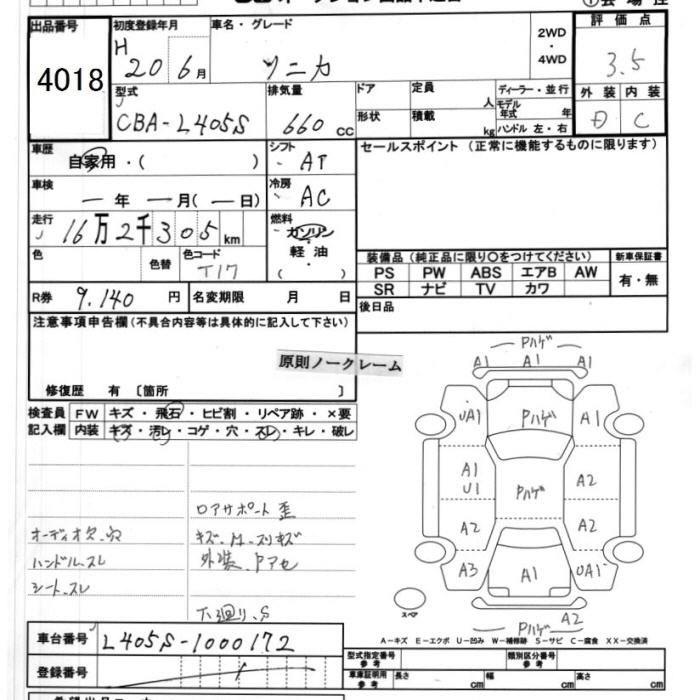 出品番号
4018
初度登録年月
H
20 6月
車名・グレード
ソニカ
2WD
・
4WD
評価点
3.5
外装 内装
D C
型式
CBA-L405S
排気量
660 CC
ドア
定員
人
形状
積載
kg
ディーラー・並行
モデル年式 年
ハンドル 左・右
車歴
自家用・( )
シフト
AT
セールスポイント (正常に機能するものに限ります)
車検
ー年 ー月(ー日)
冷房
AC
走行
16万2千305km
燃料
ガソリン
・
軽油
( )
色
色替
色コード
T17
装備品 (純正品に限り〇をつけてください)
新車保証書
PS PW ABS エアB AW
SR ナビ TV カワ
有・無
R券 9.140円
名変期限 月 日
後日品
注意事項申告欄(不具合内容等は具体的に記入して下さい)
原則ノークレーム
修復歴 有 〔箇所 〕
検査員
記入欄
FW キズ・飛石・ヒビ割・リペア跡・×要
内装 キズ・汚レ・コゲ・穴・スレ・キレ・破レ
Pハゲ
A1 A1 A1
UA1 Pハゲ A1
A1
U1 Pハゲ A2
A2 A2
A3 A1 UA1
A2
Pハゲ
スペア
ロアサポート歪
オーディオ欠.穴
キズ.凹.スリキズ
ハンドル.スレ
外装.Pアセ
シート.スレ
下廻り.S
車台番号 L405S-1000172
登録番号
A-キズ E-エクボ U-凹み W-補修跡 S-サビ C-腐食 XX-交換済
型式指定番号
参考
類別区分番号
参考
車庫証明用
参考
長さ cm 幅 cm 高さ cm